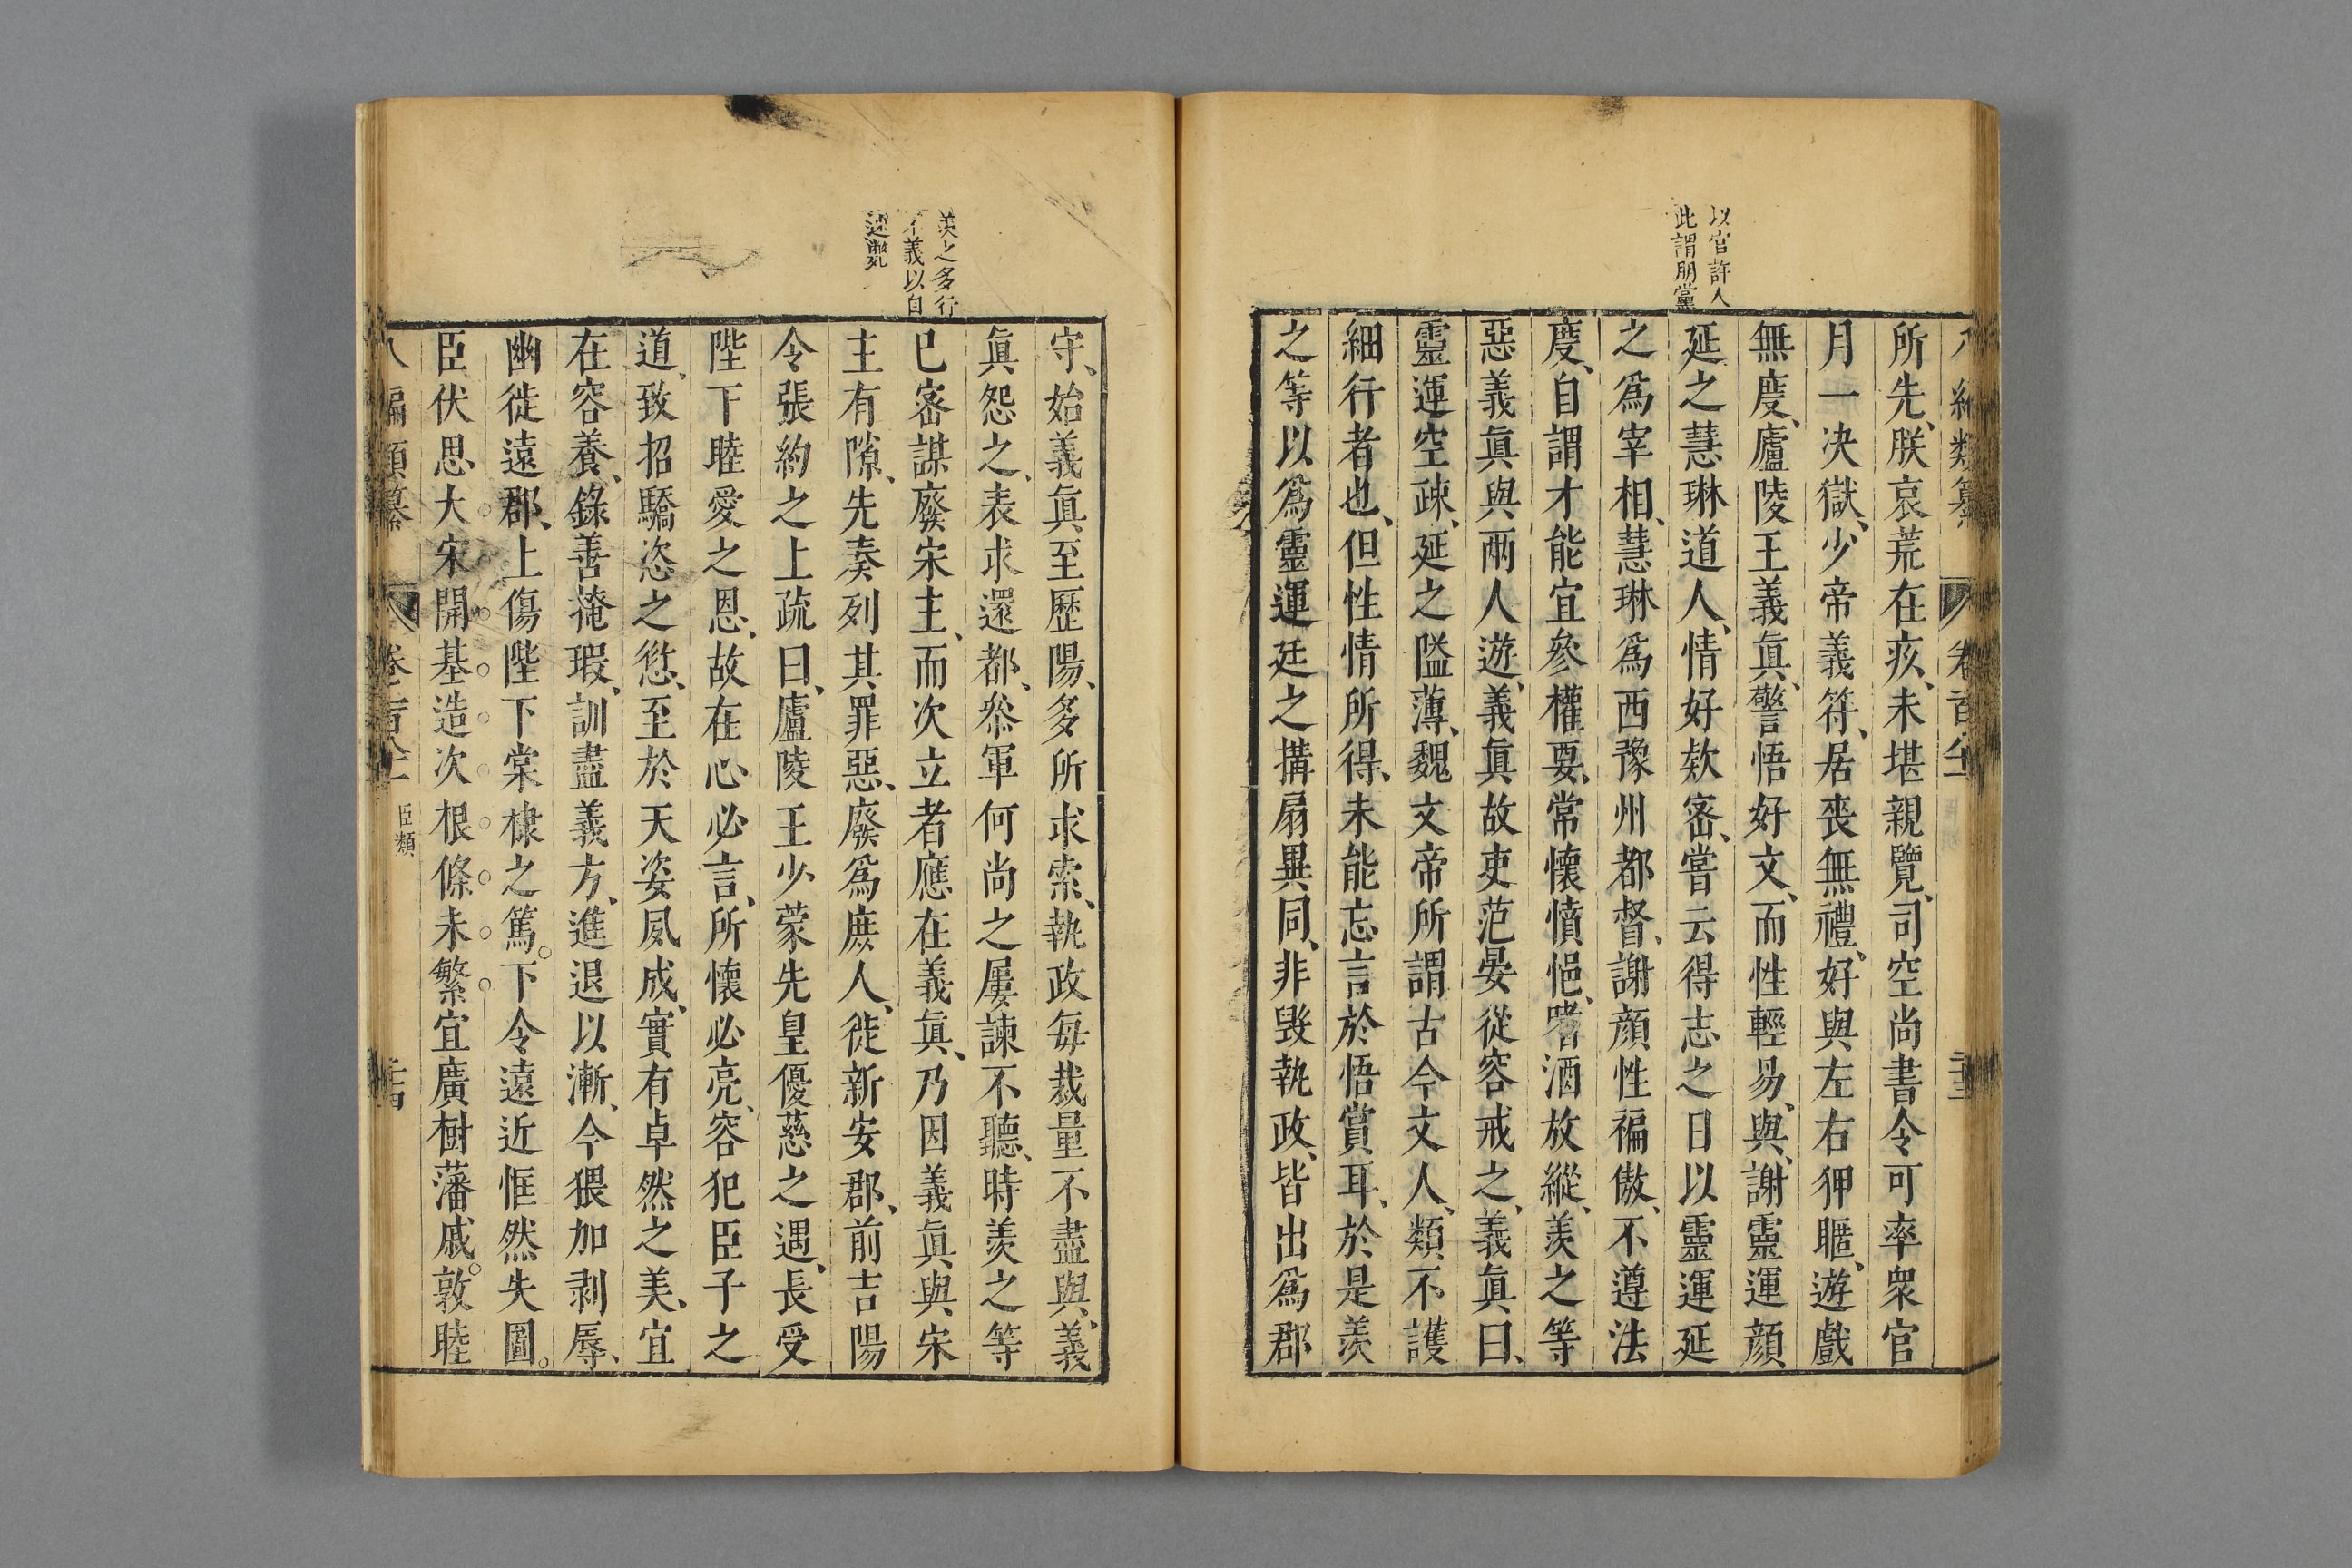 以官許人
此謂朋黨
所先、朕哀荒在疚、未堪親覽、司空尚書令可率衆官
月一决獄、少帝義符、居喪無禮、好與左右狎暱、遊戲
無度、廬陵王義眞、警悟好文、而性輕易、與、謝靈運顔
延之慧琳道人、情好欵密、嘗云得志之日以靈運延
之爲宰相、慧琳爲西豫州都督、謝顔性褊傲、不遵法
度、自謂才能宜參權要、常懷憤悒、嗜酒放縱、羨之等
惡義眞與兩人遊、義眞故吏范晏從容戒之、義眞曰、
靈運空疎、延之隘薄、魏文帝所謂古今文人、類不護
細行者也、但性情所得、未能忘言於悟賞耳、於是羨
之等以爲靈運延之搆扇異同、非毀執政、皆出爲郡
羨之多行
不義以自
述斃
守、始義眞至歷陽、多所求索、執政每裁量不盡與、義
眞怨之、表求還都、叅軍何尚之屢諫不聽、時羨之等
已密謀廢宋主、而次立者應在義眞、乃因義眞與宋
主有隙、先奏列其罪惡、廢爲庶人、徙新安郡、前吉陽
令張約之上疏曰、廬陵王少蒙先皇優慈之遇、長受
陛下睦愛之恩、故在心必言、所懷必亮、容犯臣子之
道、致招驕恣之愆、至於天姿夙成、實有卓然之美、宜
在容養、錄善掩瑕、訓盡義方、進退以漸、今猥加剥辱、
幽徙遠郡、上傷陛下棠棣之篤。下令遠近恇然失圖。
臣伏思大宋開基造次根條未繁宜廣樹藩戚。敦睦
八編類纂 卷百八十一 臣類 二十四